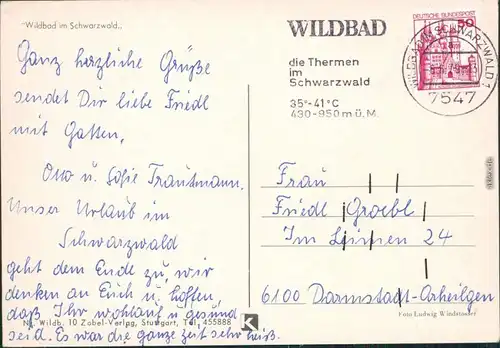 "Wildbad im Schwarzwald"
Ganz herzliche Grüße
sendet Dir liebe Friedl
mit Gatten.
Otto u. Sofie Trautmann.
Unser Urlaub im
Schwarzwald
geht dem Ende zu, wir
denken an Euch u. hoffen,
daß Ihr wohlauf u gesund
seid. Es war die ganze Zeit sehr heiß.
Nr. Wildb. 10 Zobel-Verlag, Stuttgart, Tel. 455888
K
WILDBAD
die Thermen
im
Schwarzwald
35°-41°C
430-950 m ü. M.
DEUTSCHE BUNDESPOST
50
WILDBAD IM SCHWARZWALD 1
7547
Frau
Friedl Groebl
Im Leimen 24
6100 Darmstadt-Arheilgen
Foto Ludwig Windstosser